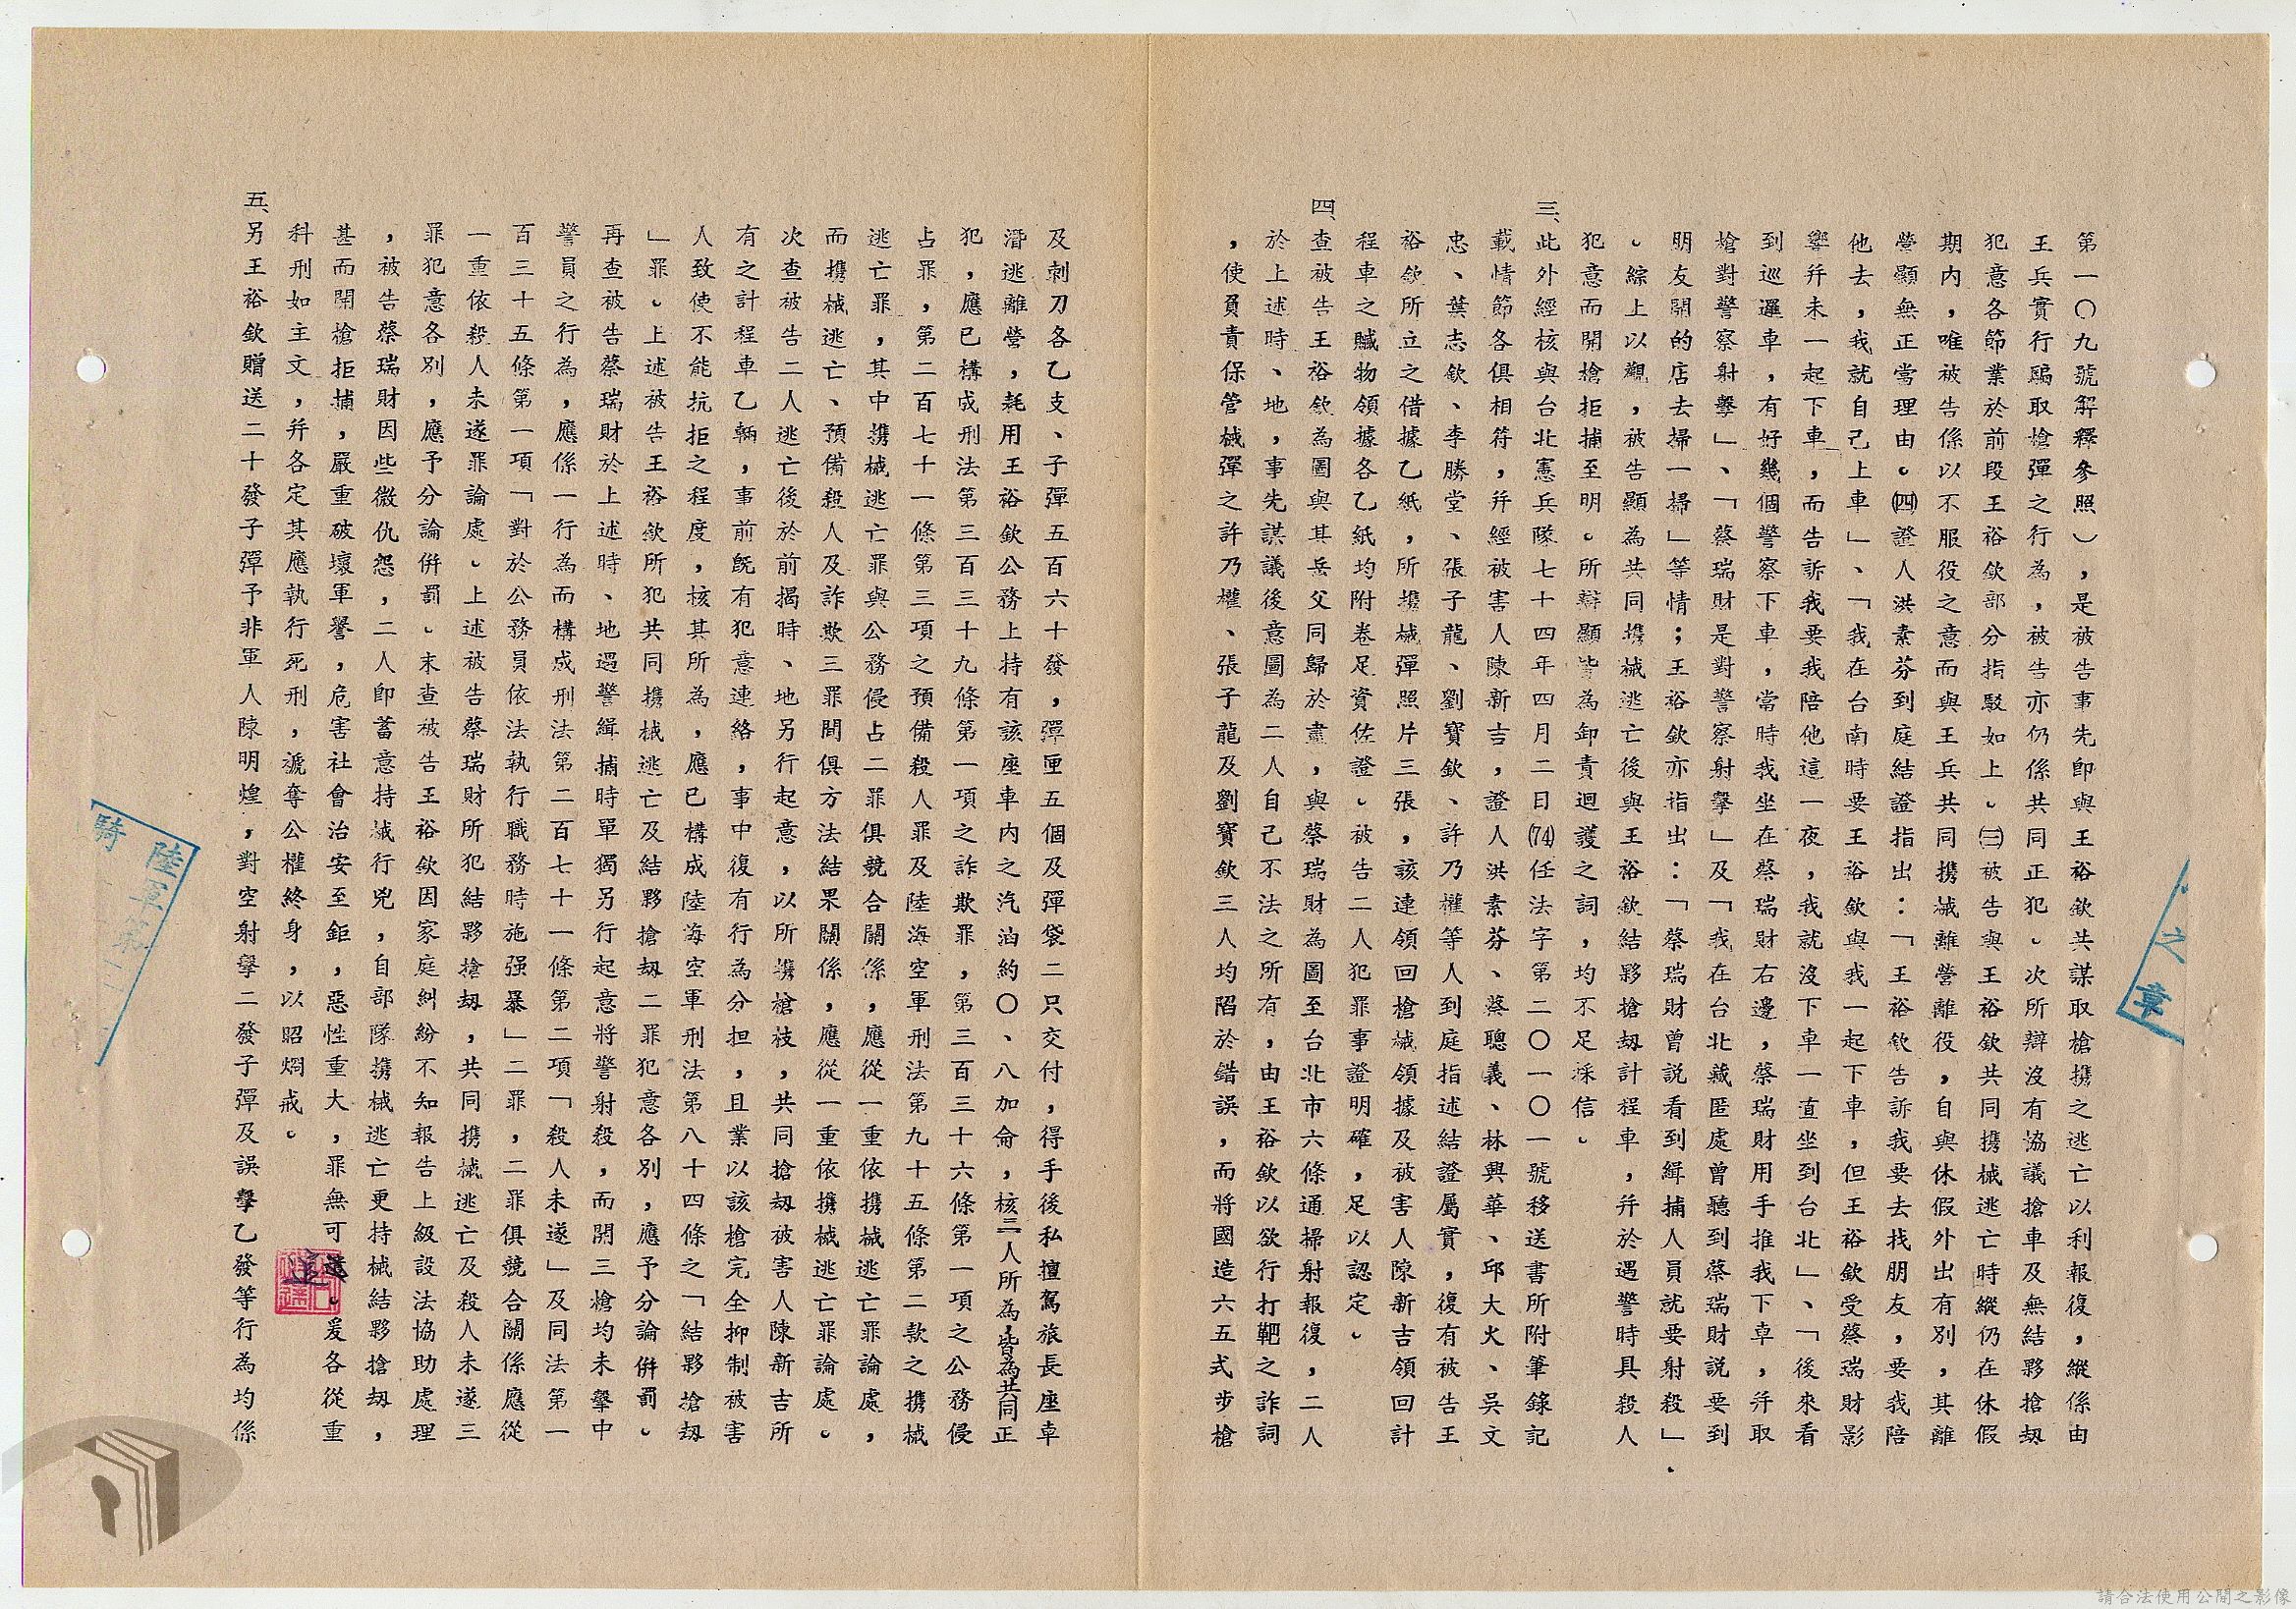 第一〇九號解釋參照），是被告事先即與王裕欽共謀取槍携之逃亡以利報復，縱係由
王兵實行騙取槍彈之行為，被告亦仍係共同正犯。次所辯沒有協議搶車及無結夥搶刼
犯意各節業於前段王裕欽部分指駁如上。㈢被告與王裕欽共同携械逃亡時縱仍在休假
期內，唯被告係以不服役之意而與王兵共同携械離營離役，自與休假外出有別，其離
營顯無正當理由。㈣證人洪素芬到庭結證指出：「王裕欽告訴我要去找朋友，要我陪
他去，我就自己上車」、「我在台南時要王裕欽與我一起下車，但王裕欽受蔡瑞財影
響幷未一起下車，而告訴我要我陪他這一夜，我就沒下車一直坐到台北」、「後來看
到巡邏車，有好幾個警察下車，當時我坐在蔡瑞財右邊，蔡瑞財用手推我下車，幷取
槍對警察射擊」、「蔡瑞財是對警察射擊」及「我在台北藏匿處曾聽到蔡瑞財説要到
朋友開的店去掃一掃」等情；王裕欽亦指出：「蔡瑞財曾説看到緝捕人員就要射殺」
。綜上以觀，被告顯為共同携械逃亡後與王裕欽結夥搶刼計程車，幷於遇警時具殺人
犯意而開槍拒捕至明。所辯顯皆為卸責迴護之詞，均不足採信。
三、此外經核與台北憲兵隊七十四年四月二日(74)任法字第二〇一〇一號移送書所附筆錄記
載情節各俱相符，幷經被害人陳新吉，證人洪素芬、蔡聰義、林興華、邱大火、吳文
忠、葉志欽、李勝堂、張子龍、劉寶欽、許乃權等人到庭指述結證屬實，復有被告王
裕欽所立之借據乙紙，所携械彈照片三張，該連領回槍械領據及被害人陳新吉領回計
程車之贓物領據各乙紙均附卷足資佐證。被告二人犯罪事證明確，足以認定。
四、查被告王裕欽為圖與其岳父同歸於盡，與蔡瑞財為圖至台北市六條通掃射報復，二人
於上述時、地，事先謀議後意圖為二人自己不法之所有，由王裕欽以欲行打靶之詐詞
，使負責保管械彈之許乃權、張子龍及劉寶欽三人均陷於錯誤，而將國造六五式步槍
及刺刀各乙支、子彈五百六十發，彈匣五個及彈袋二只交付，得手後私擅駕旅長座車
潛逃離營，耗用王裕欽公務上持有該座車內之汽油約〇、八加侖，核二人所為，皆為共同正
犯，應已構成刑法第三百三十九條第一項之詐欺罪，第三百三十六條第一項之公務侵
占罪，第二百七十一條第三項之預備殺人罪及陸海空軍刑法第九十五條第二款之携械
逃亡罪，其中携械逃亡罪與公務侵占二罪俱競合關係，應從一重依携械逃亡罪論處，
而携械逃亡、預備殺人及詐欺三罪間俱方法結果關係，應從一重依携械逃亡罪論處。
次查被告二人逃亡後於前揭時、地另行起意，以所携槍枝，共同搶刼被害人陳新吉所
有之計程車乙輛，事前既有犯意連絡，事中復有行為分担，且業以該槍完全抑制被害
人致使不能抗拒之程度，核其所為，應已構成陸海空軍刑法第八十四條之「結夥搶刼
」罪。上述被告王裕欽所犯共同携械逃亡及結夥搶刼二罪犯意各別，應予分論併罰。
再查被告蔡瑞財於上述時、地遇警緝捕時單獨另行起意將警射殺，而開三槍均未擊中
警員之行為，應係一行為而構成刑法第二百七十一條第二項「殺人未遂」及同法第一
百三十五條第一項「對於公務員依法執行職務時施强暴」二罪，二罪俱競合關係應從
一重依殺人未遂罪論處。上述被告蔡瑞財所犯結夥搶刼，共同携械逃亡及殺人未遂三
罪犯意各別，應予分論併罰。末查被告王裕欽因家庭糾紛不知報告上級設法協助處理
，被告蔡瑞財因些微仇怨，二人即蓄意持械行兇，自部隊携械逃亡更持械結夥搶刼，
甚而開槍拒捕，嚴重破壞軍譽，危害社會治安至鉅，惡性重大，罪無可逭。爰各從重
科刑如主文，幷各定其應執行死刑，褫奪公權終身，以昭烱戒。
五、另王裕欽贈送二十發子彈予非軍人陳明煌，對空射擊二發子彈及誤擊乙發等行為均係
之章
陸軍
騎
請合法使用公開之影像